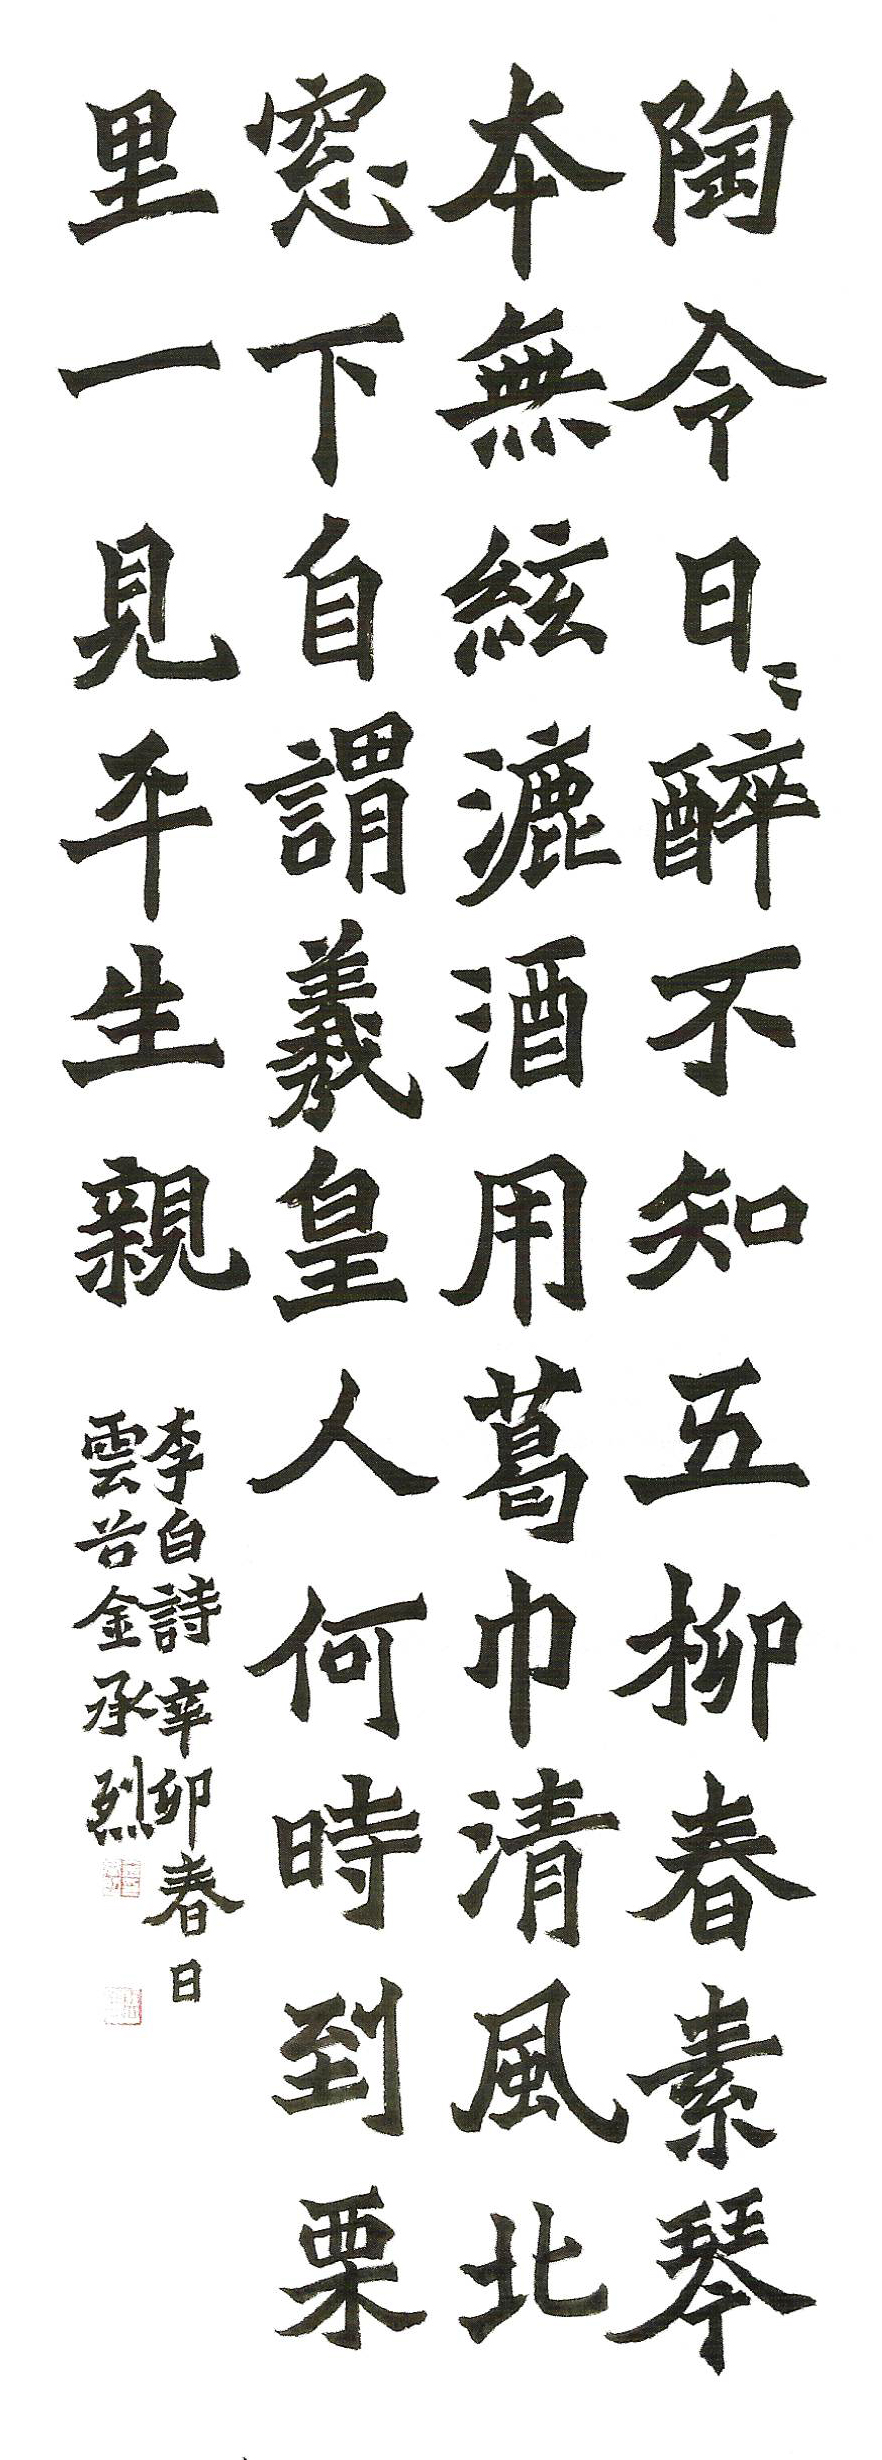 陶令日〻醉不知五柳春素琴
本無絃漉酒用葛巾清風北
窓下自謂羲皇人何時到栗
里一見平生親
李白詩 辛卯春日
雲谷金承烈